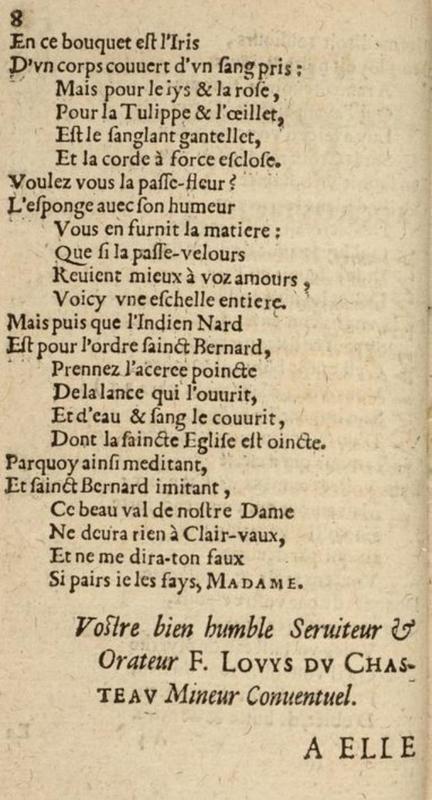 8
En ce bouquet eſt l'Iris
D'vn corps couuert d'vn ſang pris :
Mais pour le iys & la roſe,
Pour la Tulippe & l'œillet,
Eſt le ſanglant gantellet,
Et la corde à force eſcloſe.
Voulez vous la paſſe-fleur ?
L'eſponge auec ſon humeur
Vous en furnit la matiere :
Que ſi la paſſe-velours
Reuient mieux à voz amours,
Voicy vne eſchelle entiere.
Mais puis que l'Indien Nard
Eſt pour l'ordre ſainct Bernard,
Prennez l'aceree poincte
De la lance qui l'ouurit,
Et d'eau & ſang le couurit,
Dont la ſaincte Egliſe eſt oincte.
Parquoy ainſi meditant,
Et ſainct Bernard imitant,
Ce beau val de noſtre Dame
Ne deura rien à Clair-vaux,
Et ne me dira-ton faux
Si pairs ie les fays, MADAME.
Voſtre bien humble Seruiteur &
Orateur F. LOVYS DV CHAS-
TEAV Mineur Conuentuel.
A ELLE